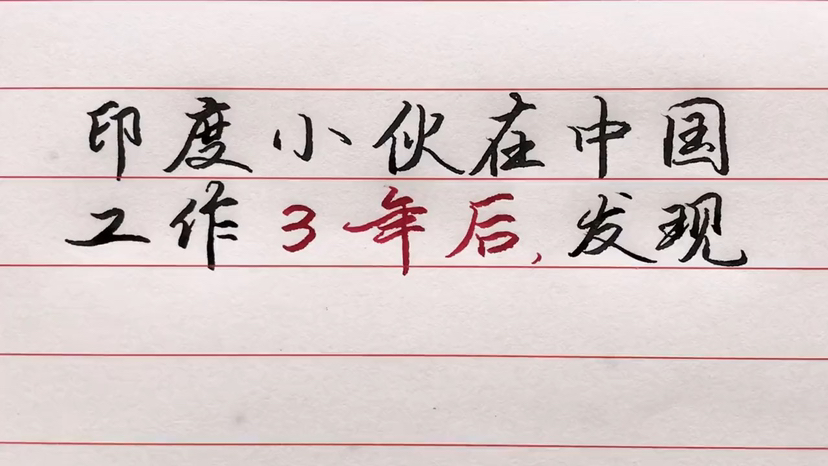 印度小伙在中国
工作3年后,发现